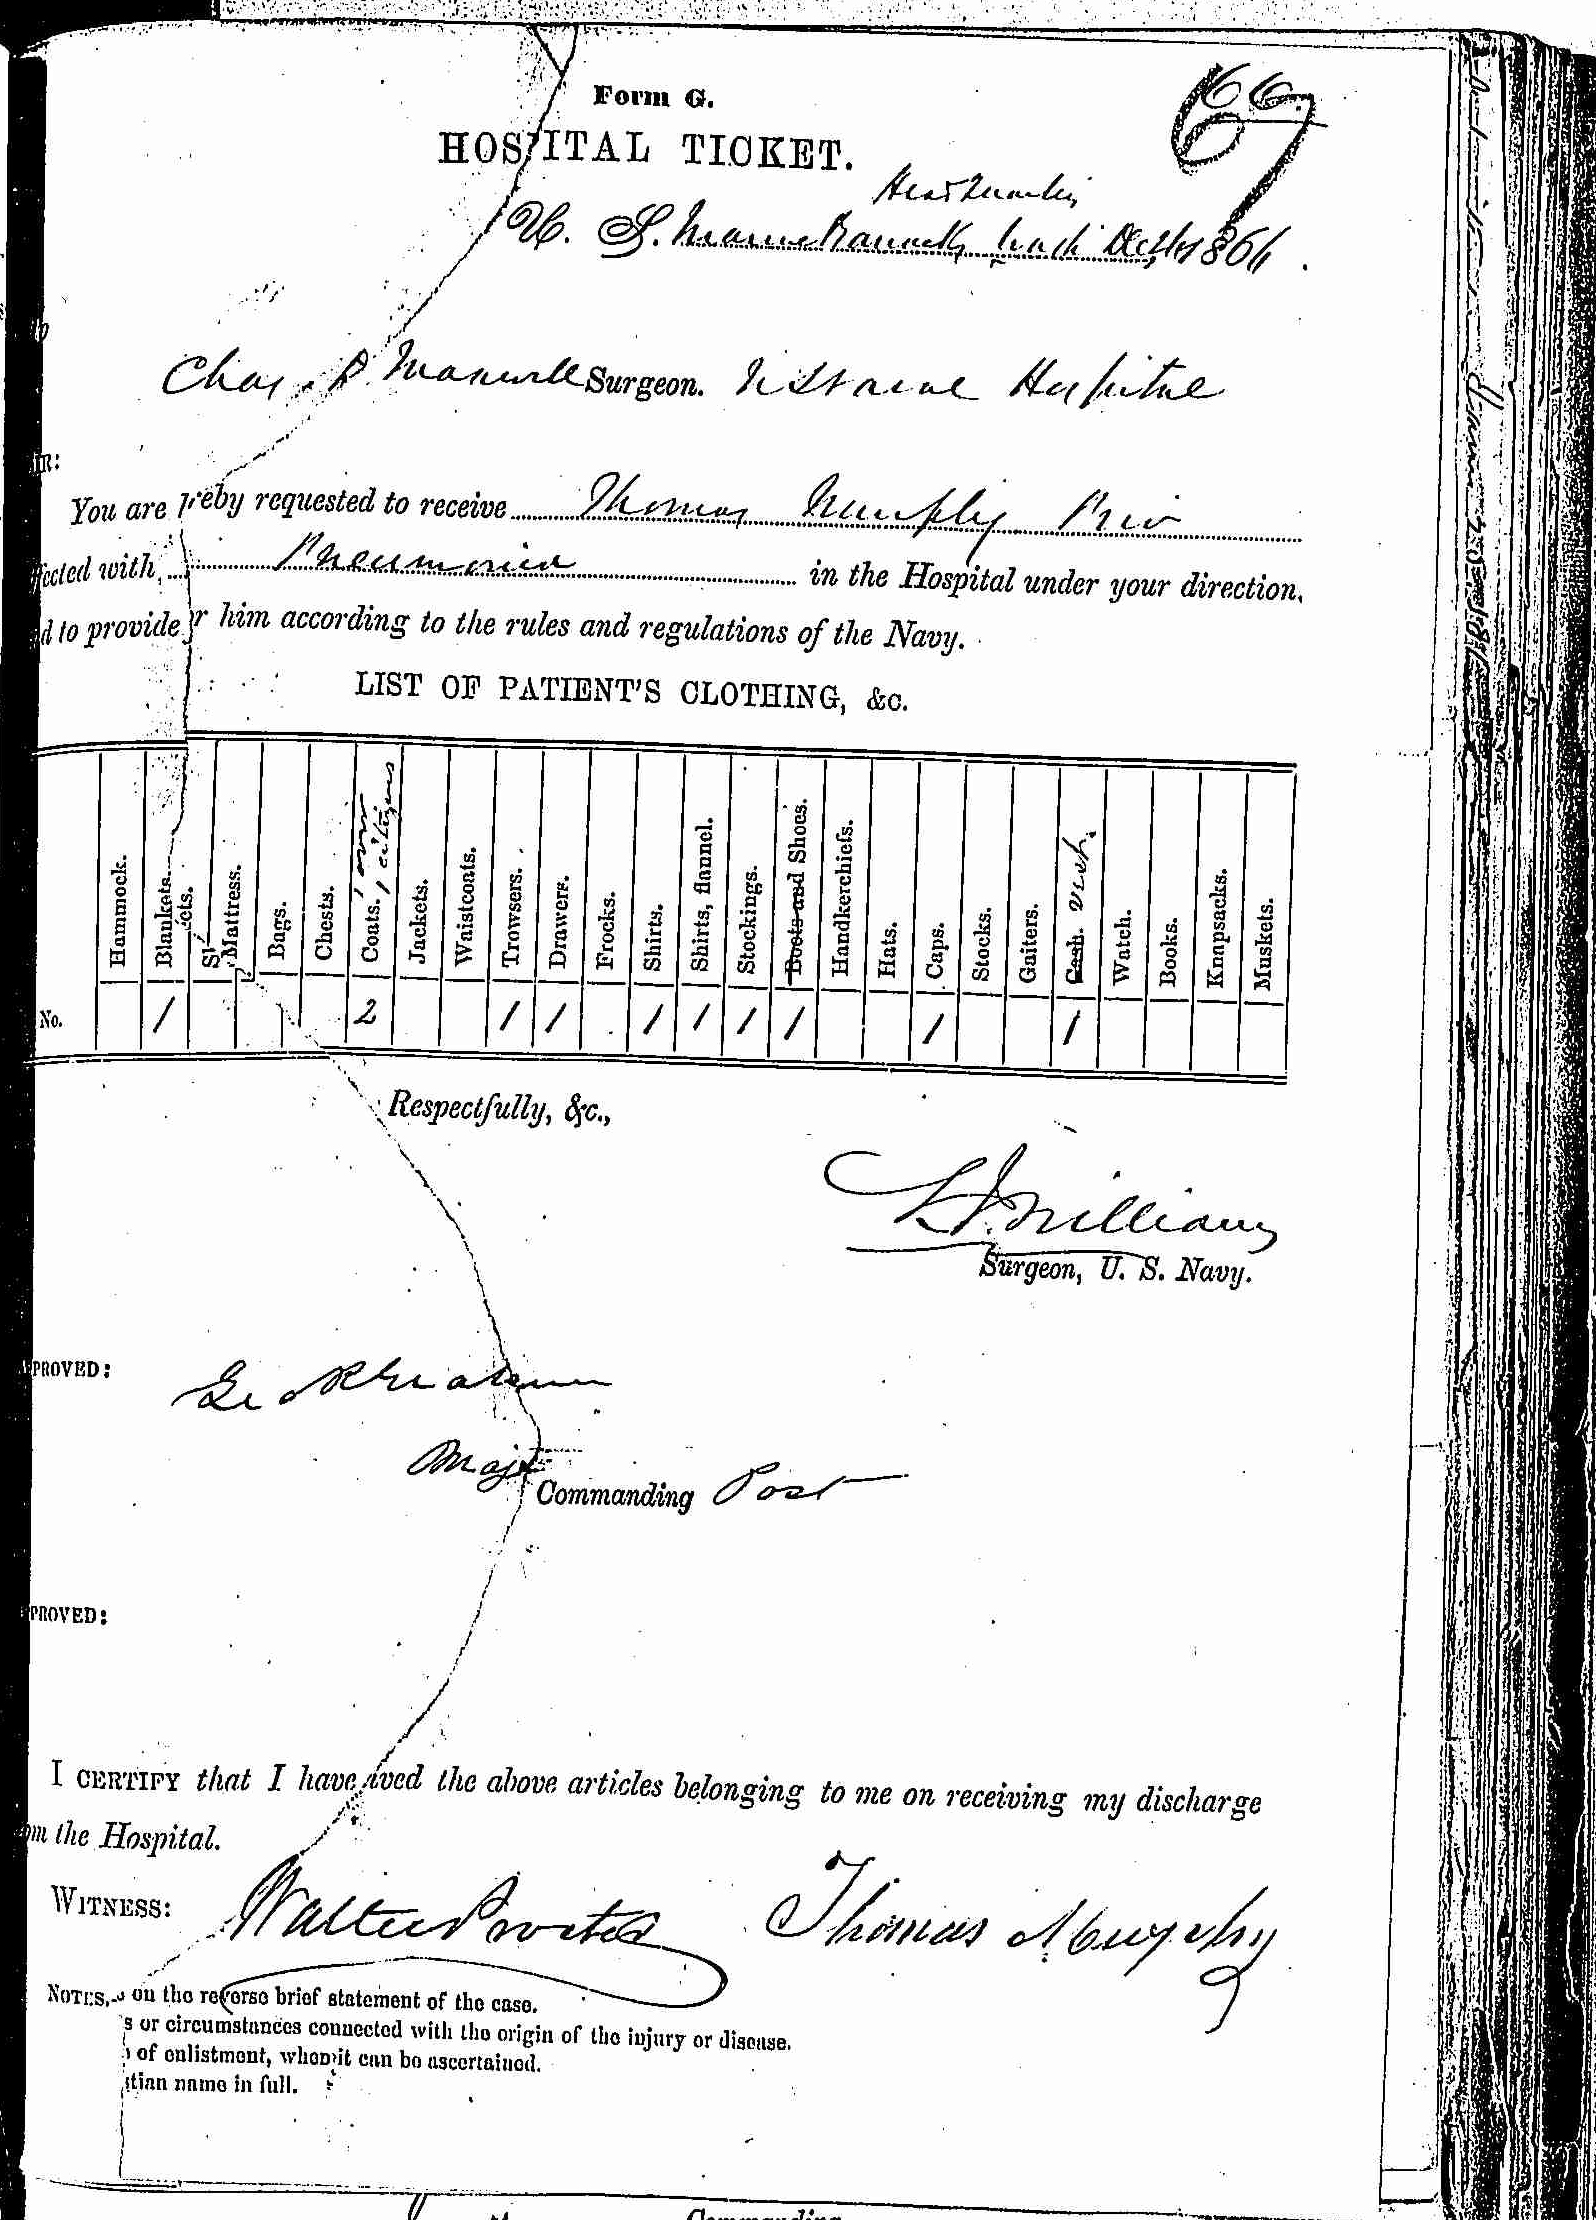 Form G.
HOSPITAL TICKET.
66
Head Quarters
U. S. Marine Barracks, Dec 1866.
Chas. D. Maxwell Surgeon. Naval Hospital
IR:
You are hereby requested to receive Thomas Murphy Priv
fected with, Pneumonia in the Hospital under your direction,
d to provide r him according to the rules and regulations of the Navy.
LIST OF PATIENT'S CLOTHING, &c.
Hammock. Blankets. Mattress. Bags. Chests. Coats. 1 citizen Jackets. Waistcoats. Trowsers. Drawers. Frocks. Shirts. Shirts, flannel. Stockings. Boots and Shoes. Handkerchiefs. Hats. Caps. Stocks. Gaiters. Cash. vest. Watch. Books. Knapsacks. Muskets.
No. 1 2 1 1 1 1 1 1 1 1
Respectfully, &c.,
Williams
Surgeon, U. S. Navy.
PROVED:
Geo R Graham
Maj
Commanding Post
PROVED:
I CERTIFY that I have ived the above articles belonging to me on receiving my discharge
om the Hospital.
WITNESS: Walter Thomas Murphy
NOTES, on the reverse brief statement of the case.
s or circumstances connected with the origin of the injury or disease.
of enlistment, when it can be ascertained.
tian name in full.
Commanding